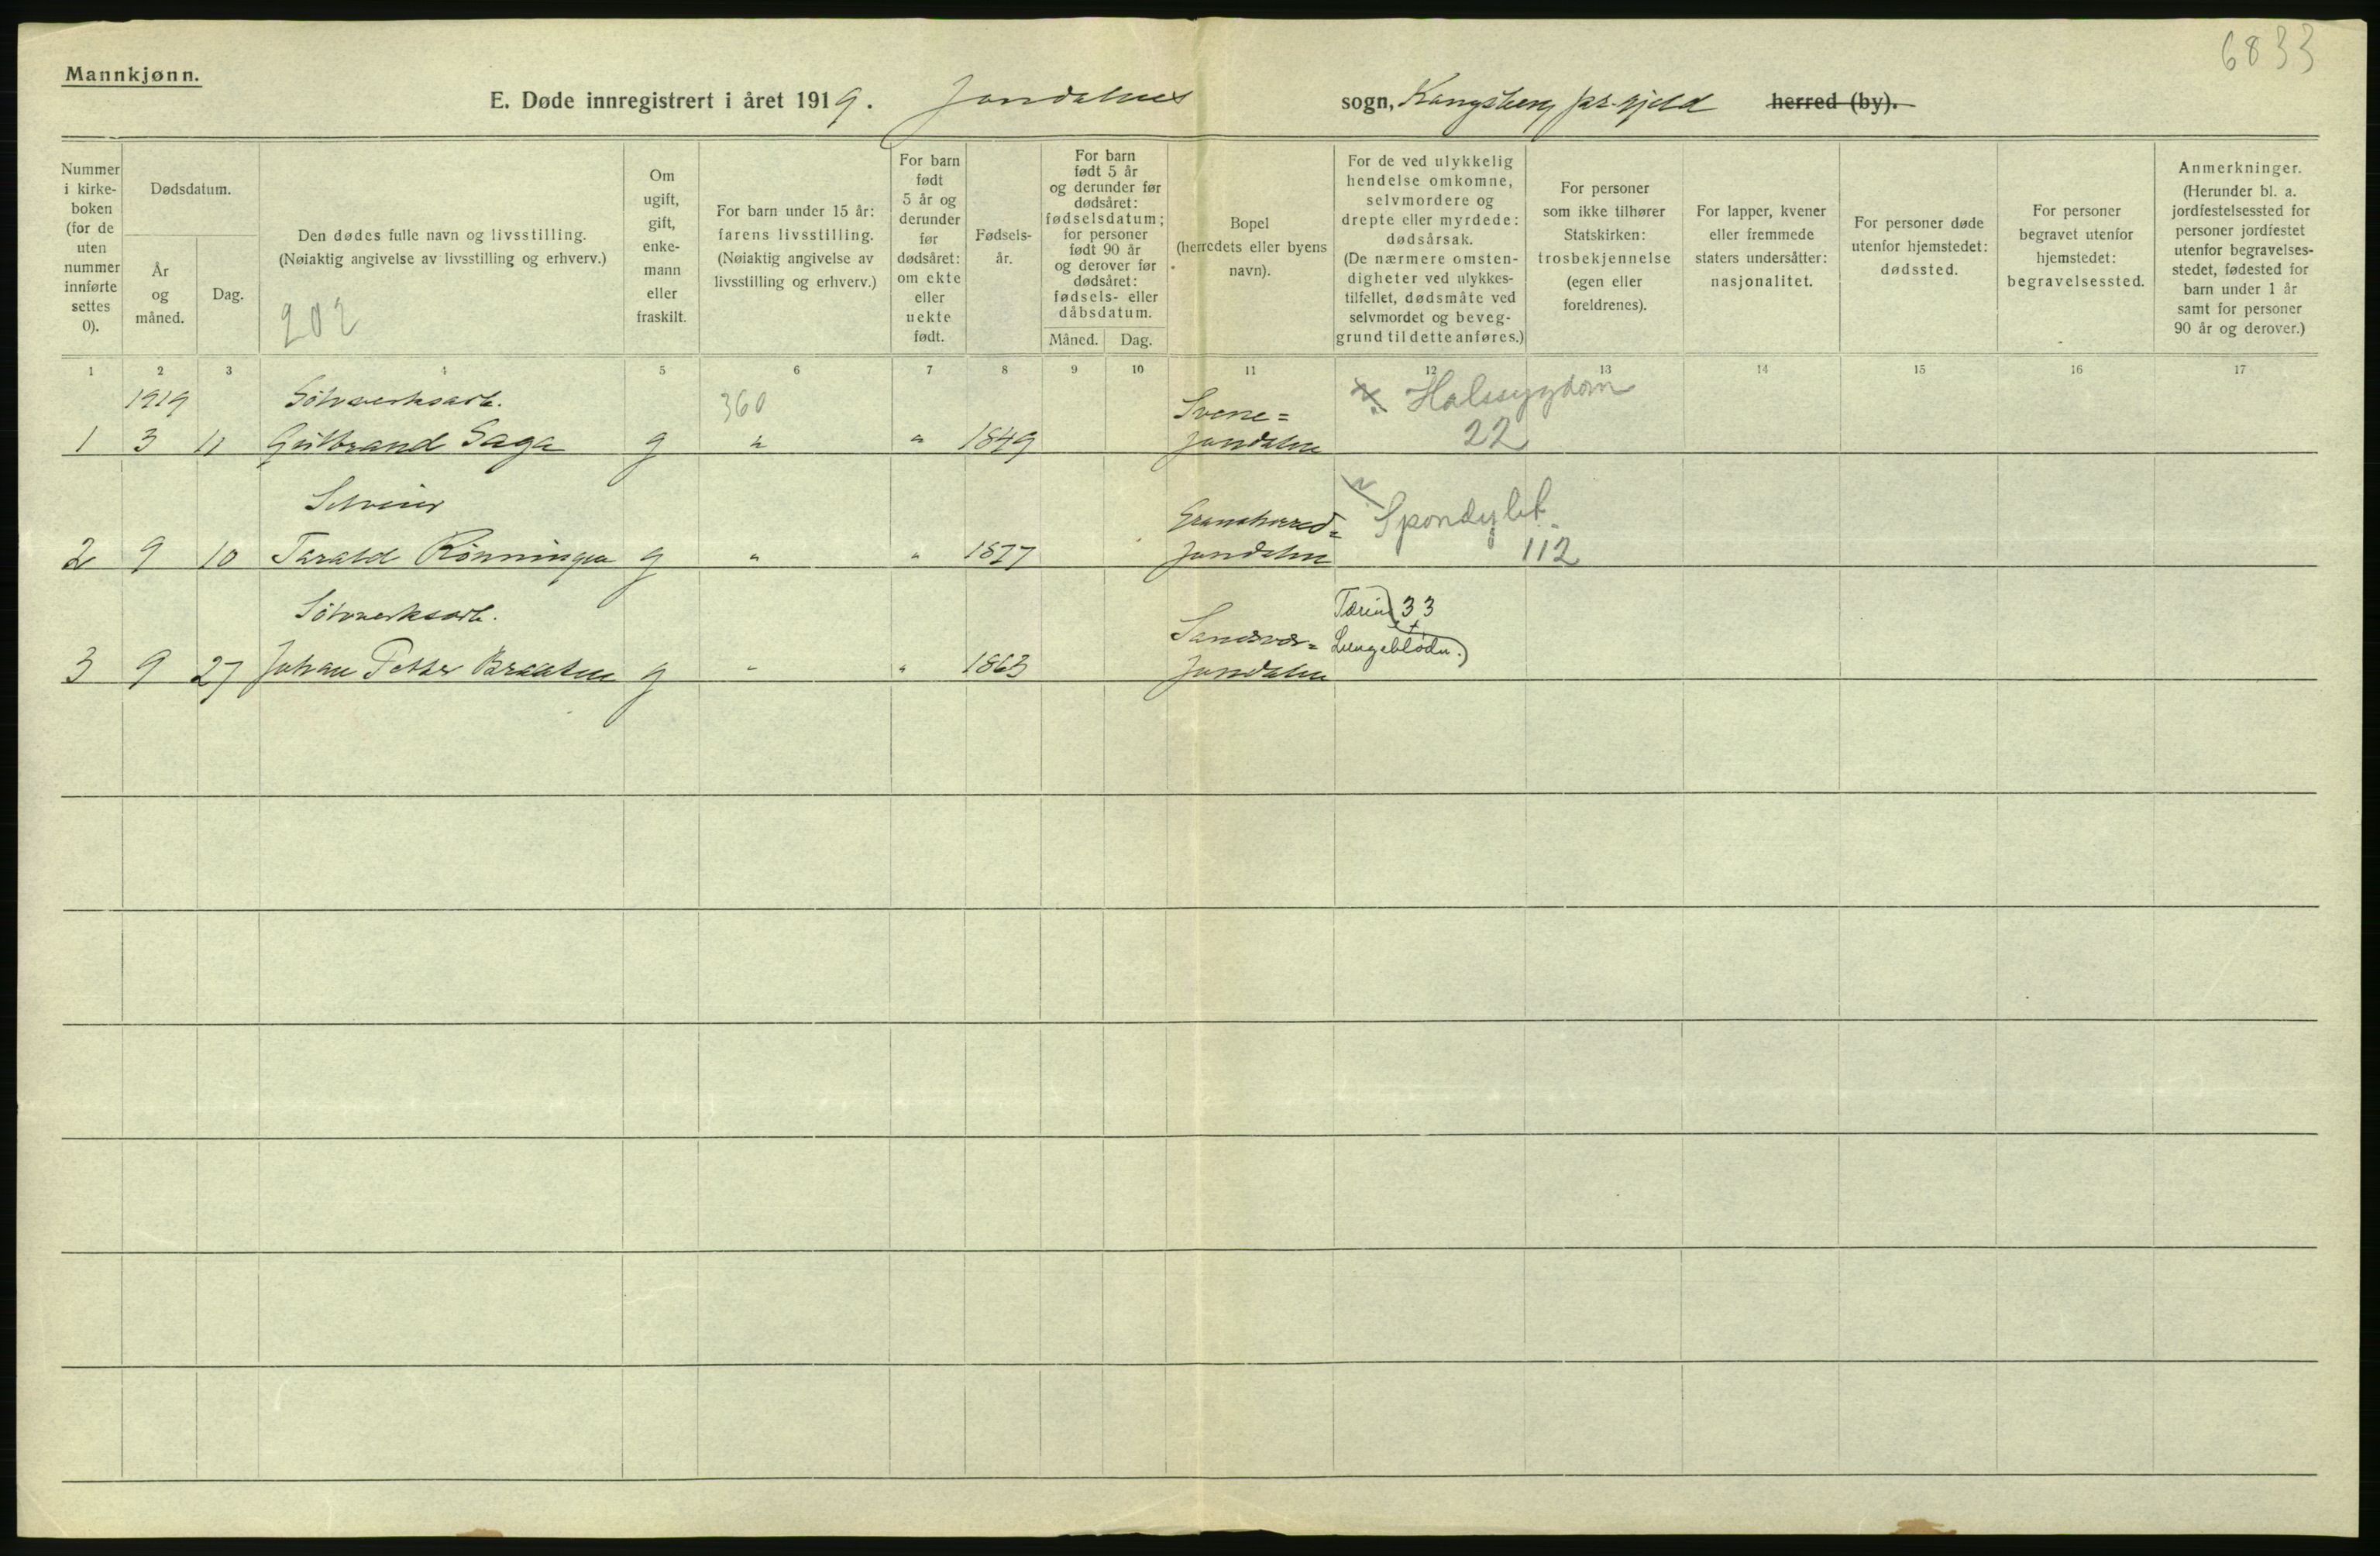 6833
Mannkjønn.
E. Døde innregistrert i året 1919. Jondalens sogn, Kongsberg pr.gjeld herred (by).
Nummer i kirke-boken (for de uten nummer innførte settes 0).
Dødsdatum.
År og måned.
Dag.
Den dødes fulle navn og livsstilling.
(Nøiaktig angivelse av livsstilling og erhverv.)
202
Om ugift, gift, enke-mann eller fraskilt.
For barn under 15 år: farens livsstilling. (Nøiaktig angivelse av livsstilling og erhverv.)
For barn født 5 år og derunder før dødsåret: om ekte eller uekte født.
Fødsels-år.
For barn født 5 år og derunder før dødsåret: fødselsdatum; for personer født 90 år og derover før dødsåret: fødsels- eller dåbsdatum.
Måned. Dag.
Bopel (herredets eller byens navn).
For de ved ulykkelig hendelse omkomne, selvmordere og drepte eller myrdede: dødsårsak. (De nærmere omsten-digheter ved ulykkes-tilfellet, dødsmåte ved selvmordet og beveg-grund til dette anføres.)
For personer som ikke tilhører Statskirken: trosbekjennelse (egen eller foreldrenes).
For lapper, kvener eller fremmede staters undersåtter: nasjonalitet.
For personer døde utenfor hjemstedet: dødssted.
For personer begravet utenfor hjemstedet: begravelsessted.
Anmerkninger. (Herunder bl. a. jordfestelsessted for personer jordfestet utenfor begravelses-stedet, fødested for barn under 1 år samt for personer 90 år og derover.)
1 2 3 4 5 6 7 8 9 10 11 12 13 14 15 16 17
1919 Sølvverksarb. 360 Svene= Halssygdom
1 3 11 Gulbrand Saga g " " 1849 Jondalen 22
Gransherred= Spondylit
2 9 10 Tarald Rønningen g " " 1877 Jondalen 112
Sølvverksarb. Tæring 33
Sandsvær= Lungeblødn.)
3 9 27 Johan Petter Braaten g " " 1863 Jondalen